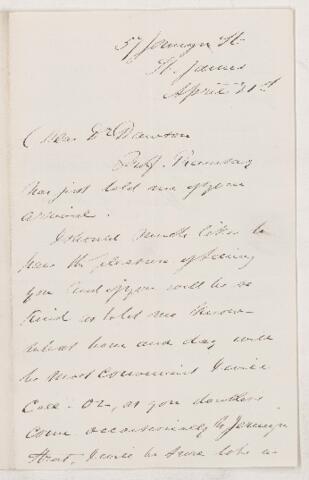 57 Jermyn St.
St. James
April 21st
Dear Dr Dawson
Prof. Ramsay
has just told me of your
arrival.
I should much like to
have the pleasure of seeing
you and if you will be so
kind as to let me know
what hour and day will
be most convenient I will
call - or, as you doubtless
come occasionally to Jermyn
Street, I will be sure to be in